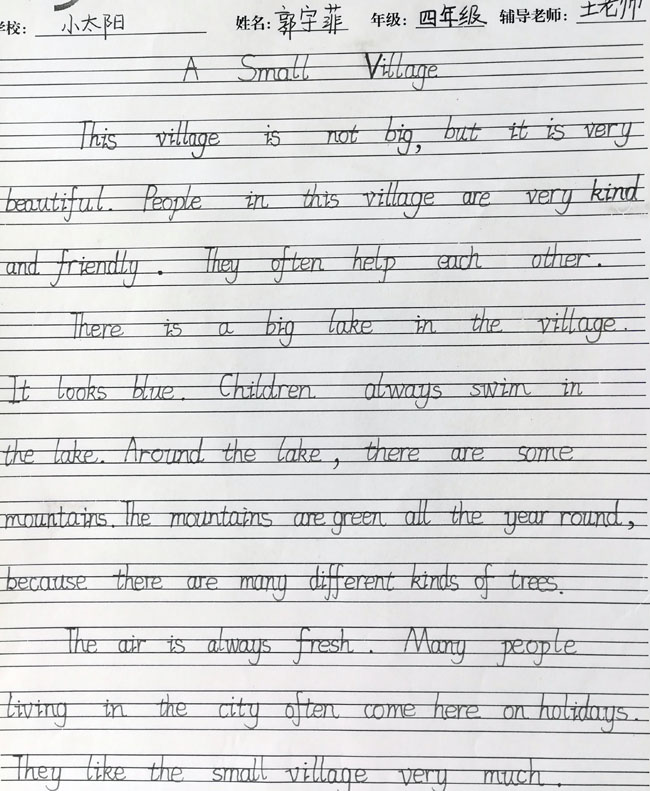 学校: 小太阳 姓名: 郭宇菲 年级: 四年级 辅导老师: 王老师
A Small Village
This village is not big, but it is very
beautiful. People in this village are very kind
and friendly. They often help each other.
There is a big lake in the village.
It looks blue. Children always swim in
the lake. Around the lake, there are some
mountains. The mountains are green all the year round,
because there are many different kinds of trees.
The air is always fresh. Many people
living in the city often come here on holidays.
They like the small village very much.